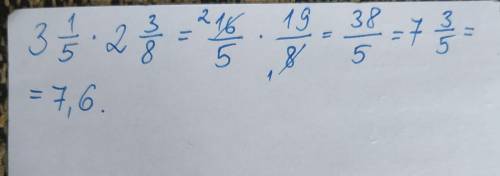 3 1/5 · 2 3/8 = ²16/5 · 19/₁8 = 38/5 = 7 3/5 =
= 7,6.